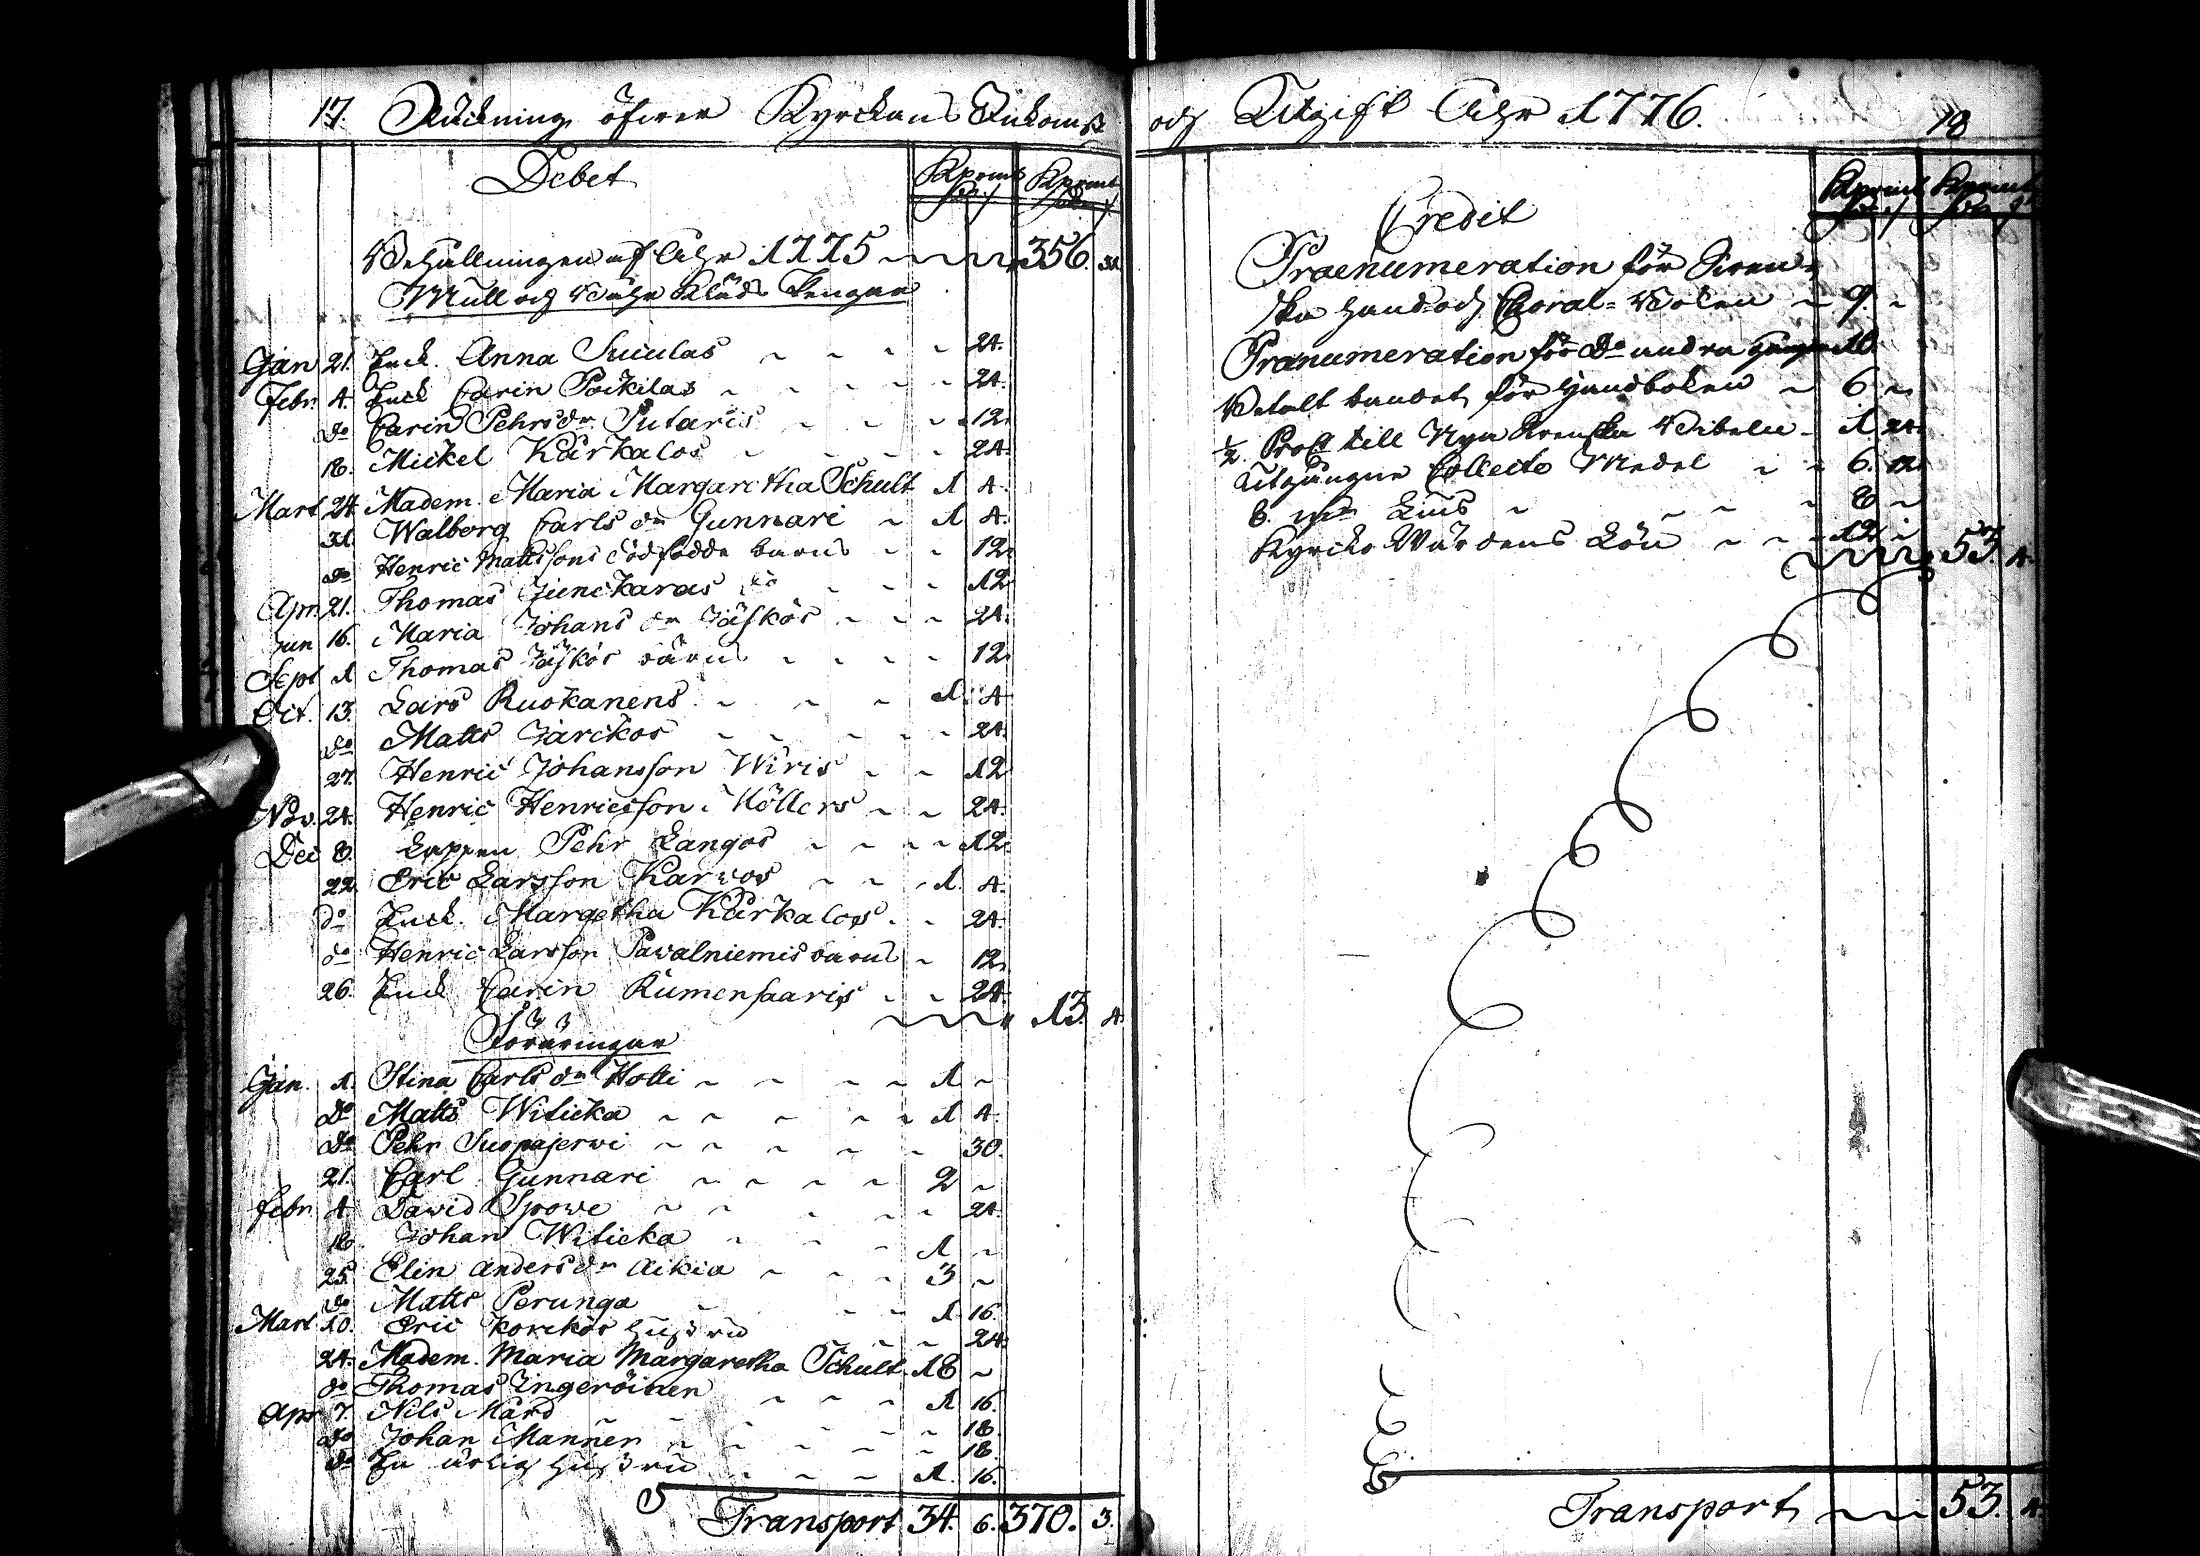 17. Räckning öfwer Kyrckans Inkomst
Debet Kprmt Kprmt
Behållningen af Åhr 1775 356. 31
Mull och Båhr Kläds Pengar
Jan 21. Enck. Anna Suculas 24.
Febr. 4. Enck Carin Poikilas 24.
Do Carin Pehrs dr Putaris 12.
18. Mickel Kärkalos 24.
Mart 24. Madem. Maria Margaretha Schult 1 4.
31. Walborg Carls dr Gunnari 1 4.
do Henric Mattssons död födde barn 12.
Apr. 21. Thomas Junckaras do 12
Jun 16. Maria Johans dr Jäskös 24.
Sept 1 Thomas Jäskös barn 12
Oct. 13. Lars Ruokanens 1. 4
do Matts Jarckos 24.
27. Henric Johansson Wiris 12
Nov. 24. Henric Henricsson Möllers 24.
Dec 8. Lappen Pehr Langos 12.
22. Eric Larsson Karvos 1. 4.
do Enck. Margetha Kärkalos 24.
do Henric Larsson Pawalniemis barn 12.
26. Enck Carin Kumensaaris 24.
13. 4.
Föräringar
Jan. 1. Stina Carls dr Holti 1
Do Matts Witicka 1 4.
Do Pehr Suopajerwi 30.
21. Carl Gunnari 2
Febr 4. David Spowe 24.
18. Johan Witicka 1
25. Elin Anders dr Aikia 3
Do Matts Perunga 1 16.
Mart 10. Eric Korckos Hustru 24.
24. Madem. Maria Margaretha Schult 18
do Thomas Ingeröinen 1 16.
Apr 7. Nils Mård 18.
Do Johan Mannen 18.
Do En ärlig Hustru 1. 16.
Transport 34. 6. 370. 3.
och Utgift Åhr 1776. 18
Credit Kprmt Kprmt
Praenumeration för Swen
ska Hand och Choral-Boken 9.
Pranumeration för Do andra gången 10.
Betalt bandet för Handboken 6
1/2 Prof till Nya Svenska Bibelen 1 24.
Utgångne Collecte Medel 6. 12.
8. Ljus 8
Kyrcko Wärdens Lön 12
53. 4.
Transport 53. 4.